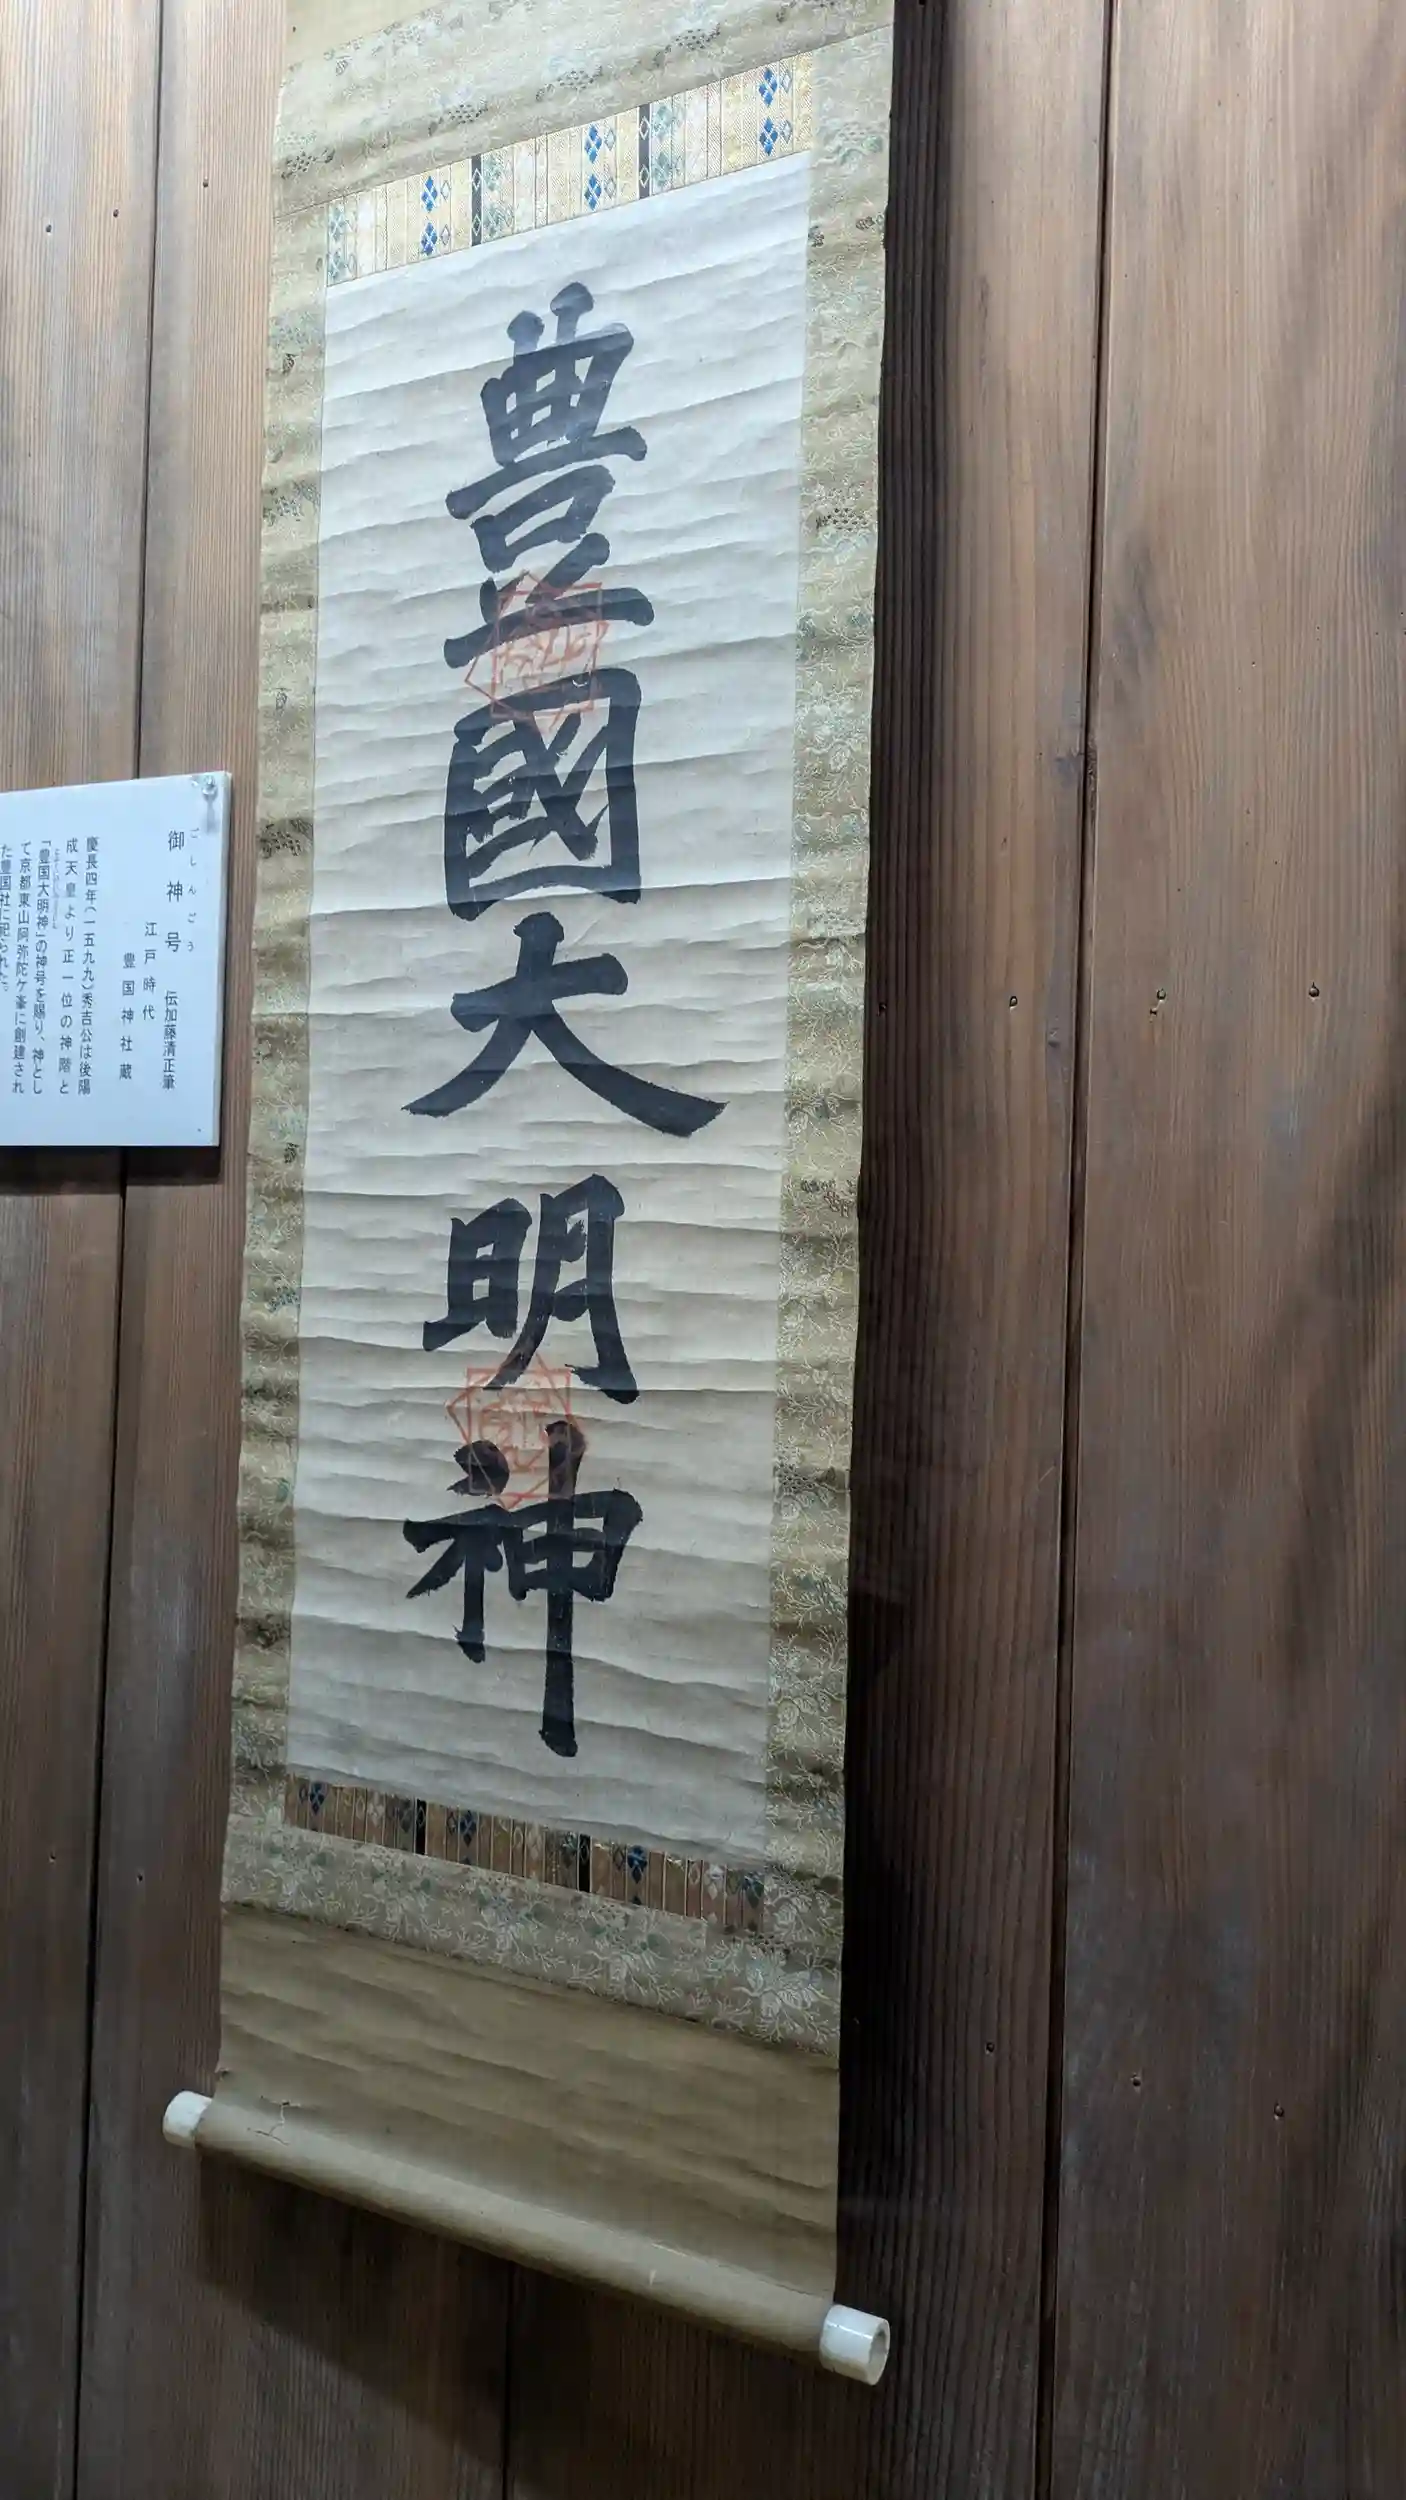 豊國大明神
御神号　伝加藤清正筆
ごしんごう
江戸時代
豊国神社蔵
慶長四年(一五九九)秀吉公は後陽
成天皇より正一位の神階と
「豊国大明神」の神号を賜り、神とし
て京都東山阿弥陀ケ峯に創建され
た豊国社に祀られた。